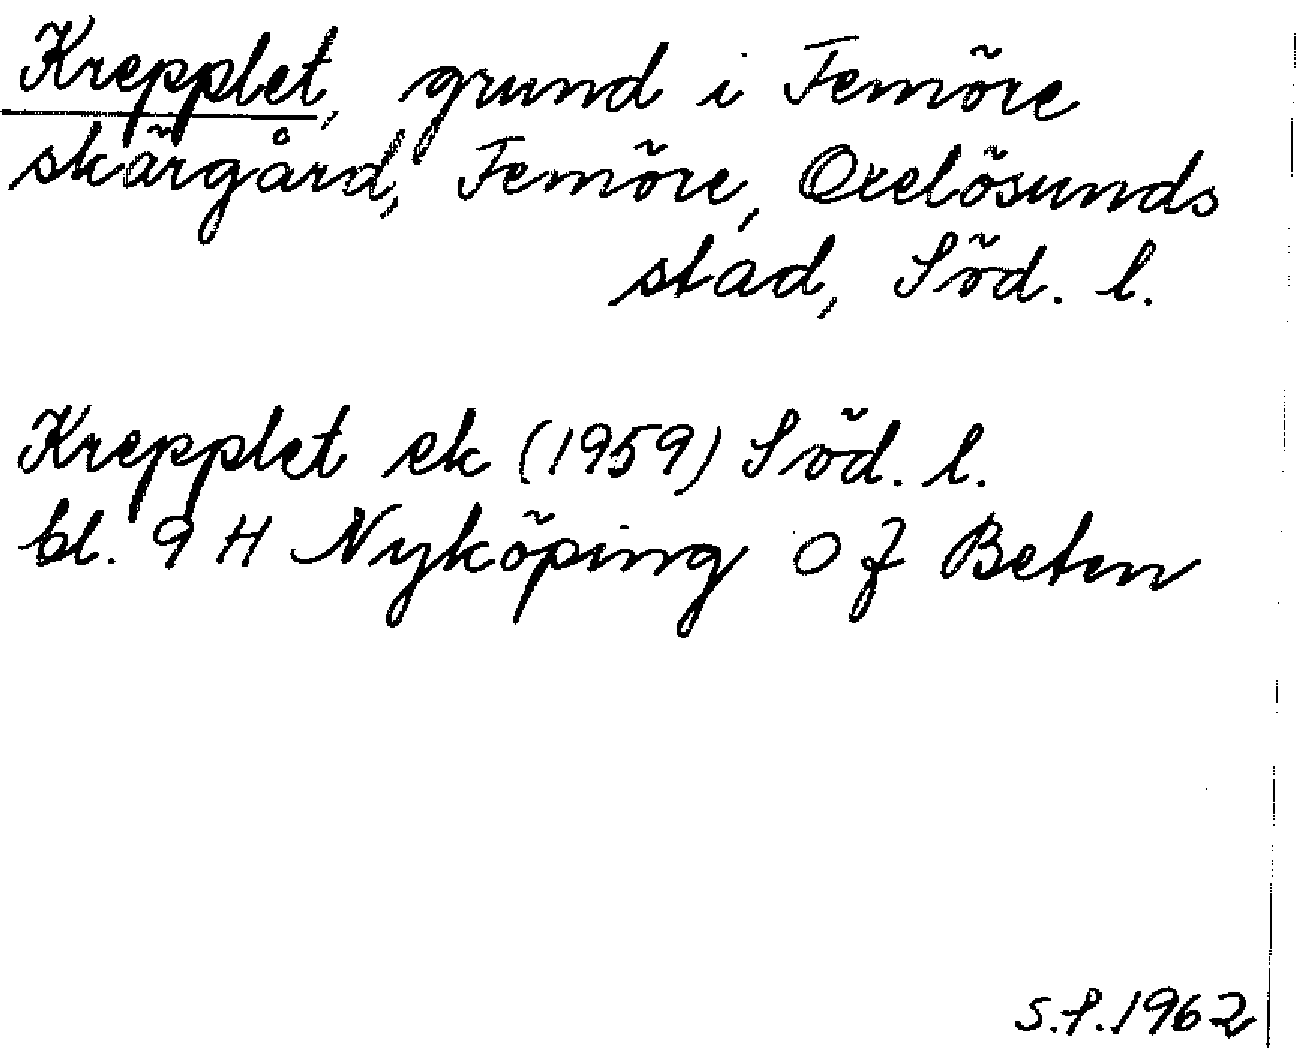 Krepplet, grund i Femöre
skärgård, Femöre, Oxelösunds
stad, Söd. l.
Krepplet ek (1959) Söd. l.
bl. 9 H Nyköping O f Beten
S.S. 1962